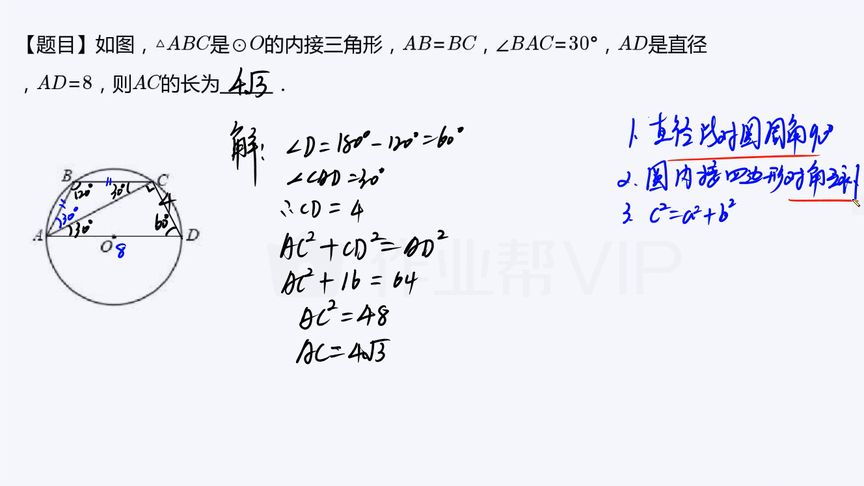 【题目】如图，△ABC是⊙O的内接三角形，AB=BC，∠BAC=30°，AD是直径
，AD=8，则AC的长为 4√3 .
解：∠D=180°-120°=60°
∠CAD=30°
∴CD=4
AC²+CD²=AD²
AC²+16=64
AC²=48
AC=4√3
1. 直径所对圆周角90°
2. 圆内接四边形对角互补
3. c²=a²+b²
B
120°
30°
C
4
30°
30°
60°
A
O
8
D
作业帮VIP